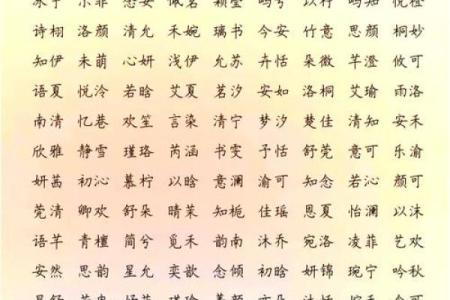 诗栩 洛颜 清允 禾婉 璃书 今安 竹意 思颜 桐妙
知伊 未萌 心妍 浅伊 允苏 卉恬 朵微 芊澄 攸可
语夏 悦泠 若晗 艾夏 茗汐 安如 洛桐 艾瑜 雨洛
南清 忆巷 欢笙 言染 清宁 梦汐 楚佳 清知 安禾
欣雅 静雪 瑾珞 芮涵 书雯 子恬 舒莞 意可 乐渝
妍茜 初沁 慕柠 以晗 意澜 渝可 知念 若沁 颜可
莞清 卿欢 舒朵 晴茉 知栀 佳瑶 恩夏 怡澜 以沫
语芊 青檀 简兮 觅禾 韵南 沐乔 宛洛 凌菲 艺欢
安然 思韵 星允 奕歆 念倾 初晗 妍锦 琬宁 吟秋